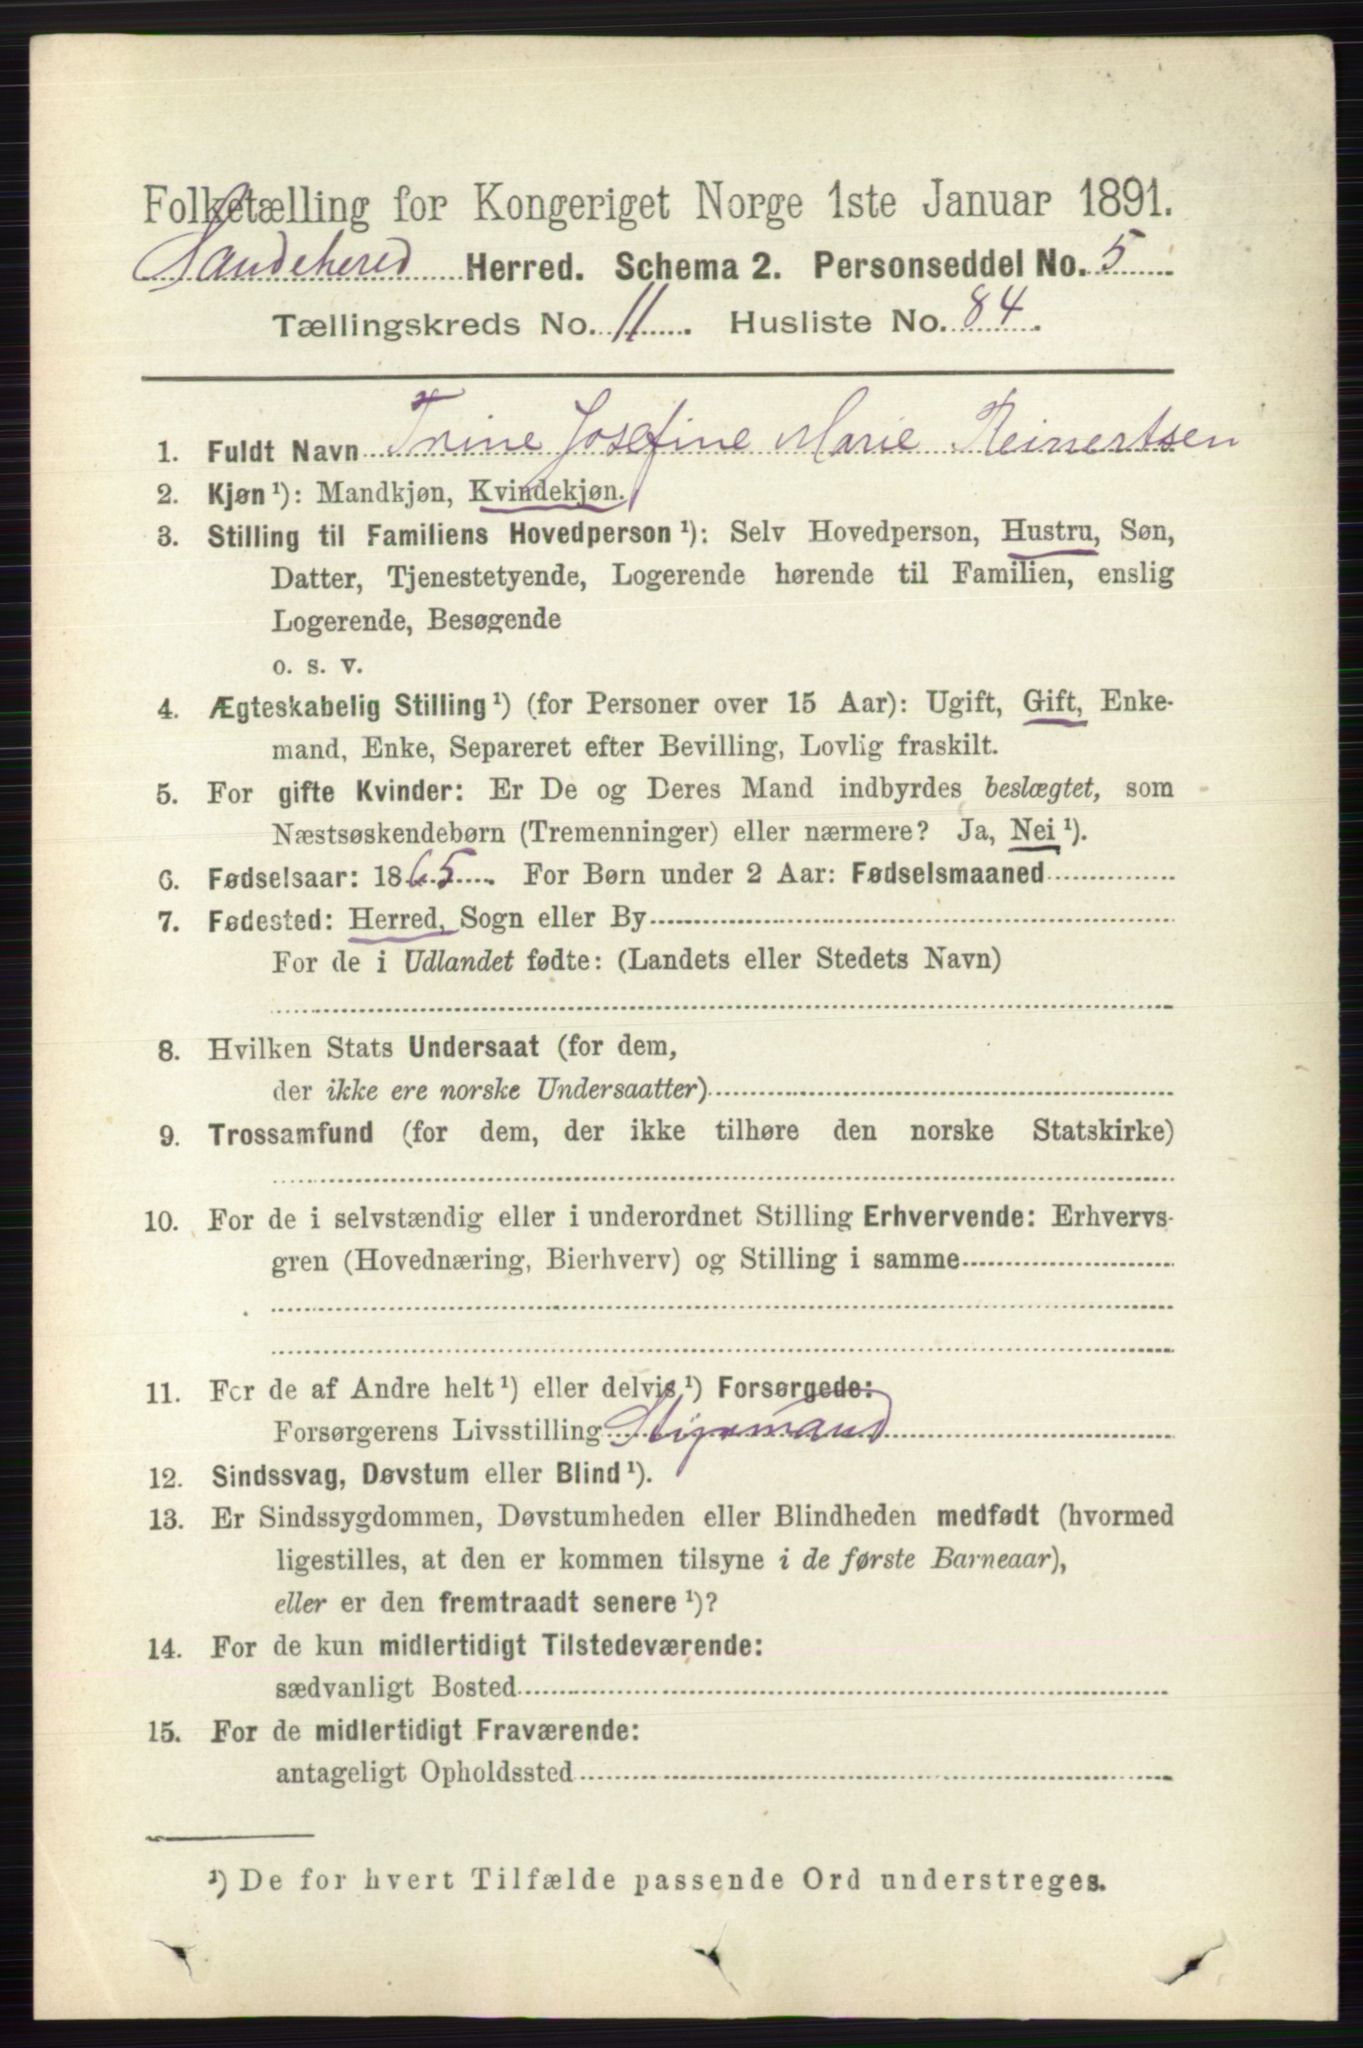 Folketælling for Kongeriget Norge 1ste Januar 1891.
Sandehered Herred. Schema 2. Personseddel No. 5
Tællingskreds No. 11. Husliste No. 84.
1. Fuldt Navn Trine Josefine Marie Reinertsen
2. Kjøn ¹): Mandkjøn, Kvindekjøn.
3. Stilling til Familiens Hovedperson ¹): Selv Hovedperson, Hustru, Søn,
Datter, Tjenestetyende, Logerende hørende til Familien, enslig
Logerende, Besøgende
o. s. v.
4. Ægteskabelig Stilling ¹) (for Personer over 15 Aar): Ugift, Gift, Enke-
mand, Enke, Separeret efter Bevilling, Lovlig fraskilt.
5. For gifte Kvinder: Er De og Deres Mand indbyrdes beslægtet, som
Næstsøskendebørn (Tremenninger) eller nærmere? Ja, Nei ¹).
6. Fødselsaar: 1865. For Børn under 2 Aar: Fødselsmaaned
7. Fødested: Herred, Sogn eller By
For de i Udlandet fødte: (Landets eller Stedets Navn)
8. Hvilken Stats Undersaat (for dem,
der ikke ere norske Undersaatter)
9. Trossamfund (for dem, der ikke tilhøre den norske Statskirke)
10. For de i selvstændig eller i underordnet Stilling Erhvervende: Erhvervs-
gren (Hovednæring, Bierhverv) og Stilling i samme
11. For de af Andre helt ¹) eller delvis ¹) Forsørgede:
Forsørgerens Livsstilling Styrmand
12. Sindssvag, Døvstum eller Blind ¹).
13. Er Sindssygdommen, Døvstumheden eller Blindheden medfødt (hvormed
ligestilles, at den er kommen tilsyne i de første Barneaar),
eller er den fremtraadt senere ¹)?
14. For de kun midlertidigt Tilstedeværende:
sædvanligt Bosted
15. For de midlertidigt Fraværende:
antageligt Opholdssted
¹) De for hvert Tilfælde passende Ord understreges.